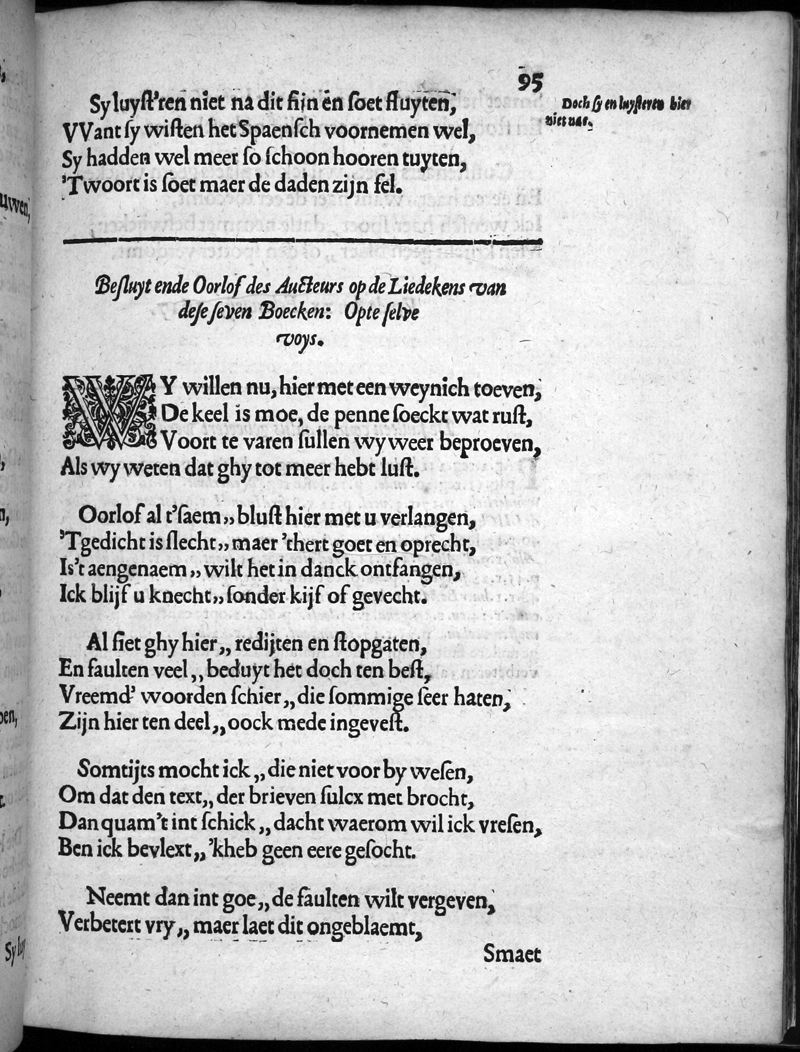 95
Sy luyst'ren niet na dit fijn en soet fluyten,
VVant sy wisten het Spaensch voornemen wel,
Sy hadden wel meer so schoon hooren tuyten,
'Twoort is soet maer de daden zijn fel.
Doch sy en luysteren hier
niet nae.
Besluyt ende Oorlof des Aucteurs op de Liedekens van
dese seven Boecken: Opte selve
voys.
WY willen nu, hier met een weynich toeven,
De keel is moe, de penne soeckt wat rust,
Voort te varen sullen wy weer beproeven,
Als wy weten dat ghy tot meer hebt lust.
Oorlof al t'saem,, blust hier met u verlangen,
'Tgedicht is slecht,, maer 'thert goet en oprecht,
Is't aengenaem,, wilt het in danck ontfangen,
Ick blijf u knecht,, sonder kijf of gevecht.
Al siet ghy hier,, redijten en stopgaten,
En faulten veel,, beduyt het doch ten best,
Vreemd' woorden schier,, die sommige seer haten,
Zijn hier ten deel,, oock mede ingevest.
Somtijts mocht ick,, die niet voor by wesen,
Om dat den text,, der brieven sulcx met brocht,
Dan quam't int schick,, dacht waerom wil ick vresen,
Ben ick bevlext,, 'kheb geen eere gesocht.
Neemt dan int goe,, de faulten wilt vergeven,
Verbetert vry,, maer laet dit ongeblaemt,
Smaet